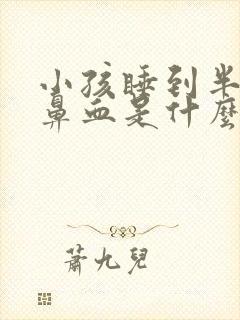 小孩睡到半
鼻血是什麼
蕭九兒